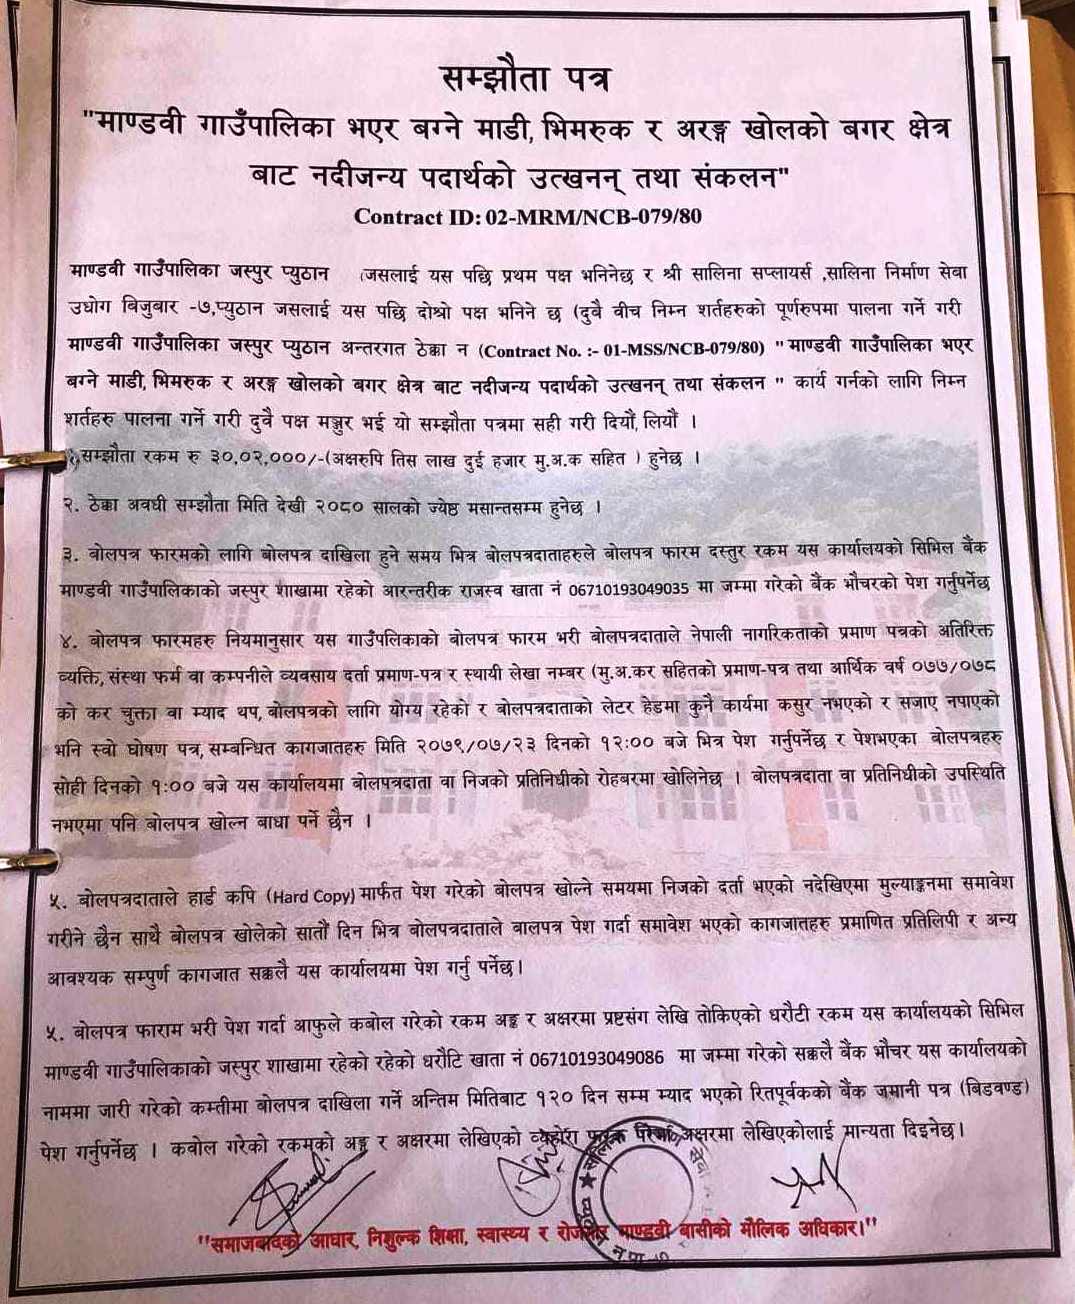 सम्झौता पत्र
"माण्डवी गाउँपालिका भएर बग्ने माडी, भिमरुक र अरङ्ग खोलको बगर क्षेत्र
बाट नदीजन्य पदार्थको उत्खनन् तथा संकलन"
Contract ID: 02-MRM/NCB-079/80
माण्डवी गाउँपालिका जस्पुर प्युठान (जसलाई यस पछि प्रथम पक्ष भनिनेछ र श्री सालिना सप्लायर्स ,सालिना निर्माण सेवा
उधोग बिजुबार -७,प्युठान जसलाई यस पछि दोश्रो पक्ष भनिने छ (दुबै वीच निम्न शर्तहरुको पूर्णरुपमा पालना गर्ने गरी
माण्डवी गाउँपालिका जस्पुर प्युठान अन्तरगत ठेक्का न (Contract No. :- 01-MSS/NCB-079/80) " माण्डवी गाउँपालिका भएर
बग्ने माडी, भिमरुक र अरङ्ग खोलको बगर क्षेत्र बाट नदीजन्य पदार्थको उत्खनन् तथा संकलन " कार्य गर्नको लागि निम्न
शर्तहरु पालना गर्ने गरी दुवै पक्ष मञ्जुर भई यो सम्झौता पत्रमा सही गरी दियौं, लियौं ।
१. सम्झौता रकम रु ३०,०२,०००/-(अक्षरुपि तिस लाख दुई हजार मु.अ.क सहित ) हुनेछ ।
२. ठेक्का अवधी सम्झौता मिति देखी २०८० सालको ज्येष्ठ मसान्तसम्म हुनेछ ।
३. बोलपत्र फारमको लागि बोलपत्र दाखिला हुने समय भित्र बोलपत्रदाताहरुले बोलपत्र फारम दस्तुर रकम यस कार्यालयको सिभिल बैंक
माण्डवी गाउँपालिकाको जस्पुर शाखामा रहेको आरन्तरीक राजस्व खाता नं 06710193049035 मा जम्मा गरेको बैंक भौचरको पेश गर्नुपर्नेछ
४. बोलपत्र फारमहरु नियमानुसार यस गाउँपलिकाको बोलपत्र फारम भरी बोलपत्रदाताले नेपाली नागरिकताको प्रमाण पत्रको अतिरिक्त
व्यक्ति, संस्था फर्म वा कम्पनीले व्यवसाय दर्ता प्रमाण-पत्र र स्थायी लेखा नम्बर (मु.अ.कर सहितको प्रमाण-पत्र तथा आर्थिक वर्ष ०७७/०७८
को कर चुक्ता वा म्याद थप, बोलपत्रको लागि योग्य रहेको र बोलपत्रदाताको लेटर हेडमा कुनै कार्यमा कसुर नभएको र सजाए नपाएको
भनि स्वो घोषण पत्र, सम्बन्धित कागजातहरु मिति २०७९/०७/२३ दिनको १२:०० बजे भित्र पेश गर्नुपर्नेछ र पेशभएका बोलपत्रहरु
सोही दिनको १:०० बजे यस कार्यालयमा बोलपत्रदाता वा निजको प्रतिनिधीको रोहबरमा खोलिनेछ । बोलपत्रदाता वा प्रतिनिधीको उपस्थिति
नभएमा पनि बोलपत्र खोल्न बाधा पर्ने छैन ।
५. बोलपत्रदाताले हार्ड कपि (Hard Copy) मार्फत पेश गरेको बोलपत्र खोल्ने समयमा निजको दर्ता भएको नदेखिएमा मुल्याङ्कनमा समावेश
गरीने छैन साथै बोलपत्र खोलेको सातौं दिन भित्र बोलपत्रदाताले बालपत्र पेश गर्दा समावेश भएको कागजातहरु प्रमाणित प्रतिलिपी र अन्य
आवश्यक सम्पुर्ण कागजात सक्कलै यस कार्यालयमा पेश गर्नु पर्नेछ।
५. बोलपत्र फाराम भरी पेश गर्दा आफुले कबोल गरेको रकम अङ्क र अक्षरमा प्रष्टसंग लेखि तोकिएको धरौटी रकम यस कार्यालयको सिभिल
माण्डवी गाउँपालिकाको जस्पुर शाखामा रहेको रहेको धरौटि खाता नं 06710193049086 मा जम्मा गरेको सक्कलै बैंक भौचर यस कार्यालयको
नाममा जारी गरेको कम्तीमा बोलपत्र दाखिला गर्ने अन्तिम मितिबाट १२० दिन सम्म म्याद भएको रितपूर्वकको बैंक जमानी पत्र (बिडवण्ड)
पेश गर्नुपर्नेछ । कवोल गरेको रकमको अङ्क र अक्षरमा लेखिएको व्यहोरा फरक परेमा अक्षरमा लेखिएकोलाई मान्यता दिइनेछ।
"समाजबादको आधार, निशुल्क शिक्षा, स्वास्थ्य र रोजगार माण्डवी बासीको मौलिक अधिकार।"